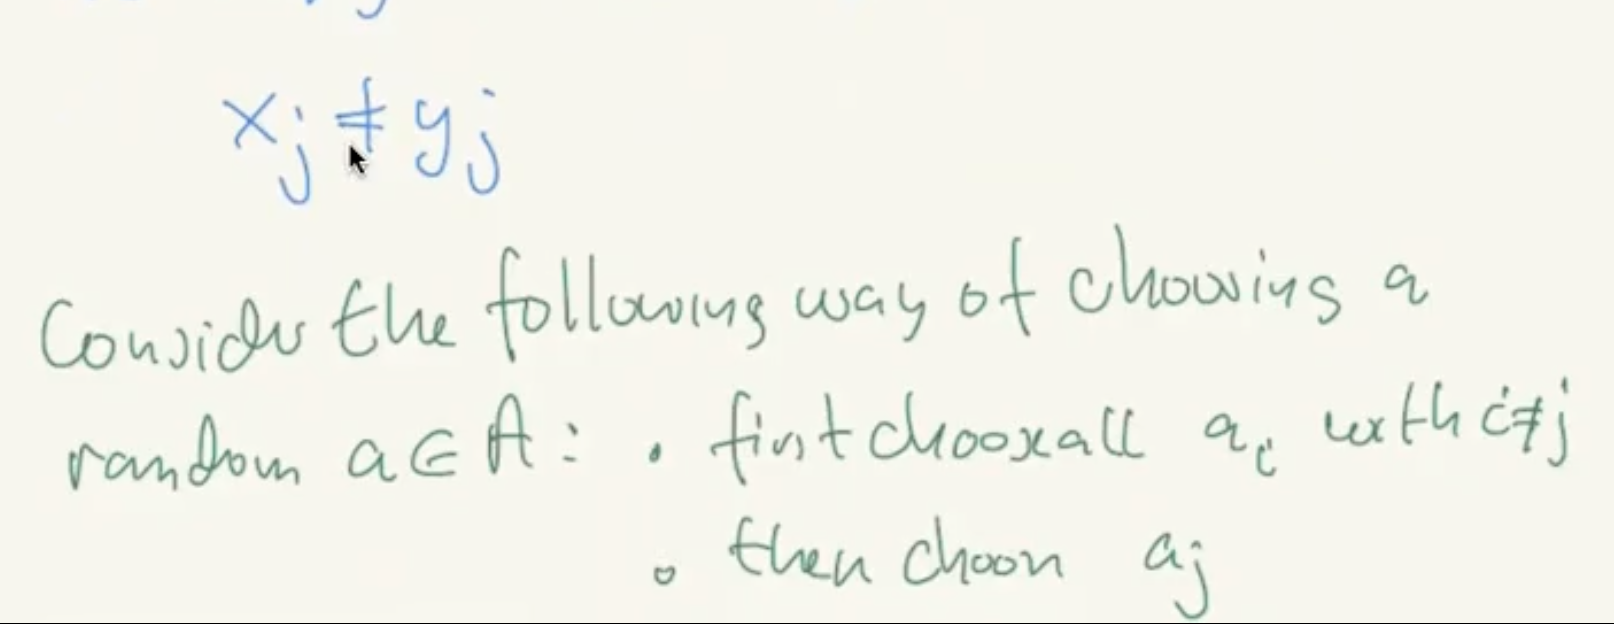 xj ≠ yj
Consider the following way of choosing a
random a ∈ A : • first choose all ai with i≠j
• then choose aj